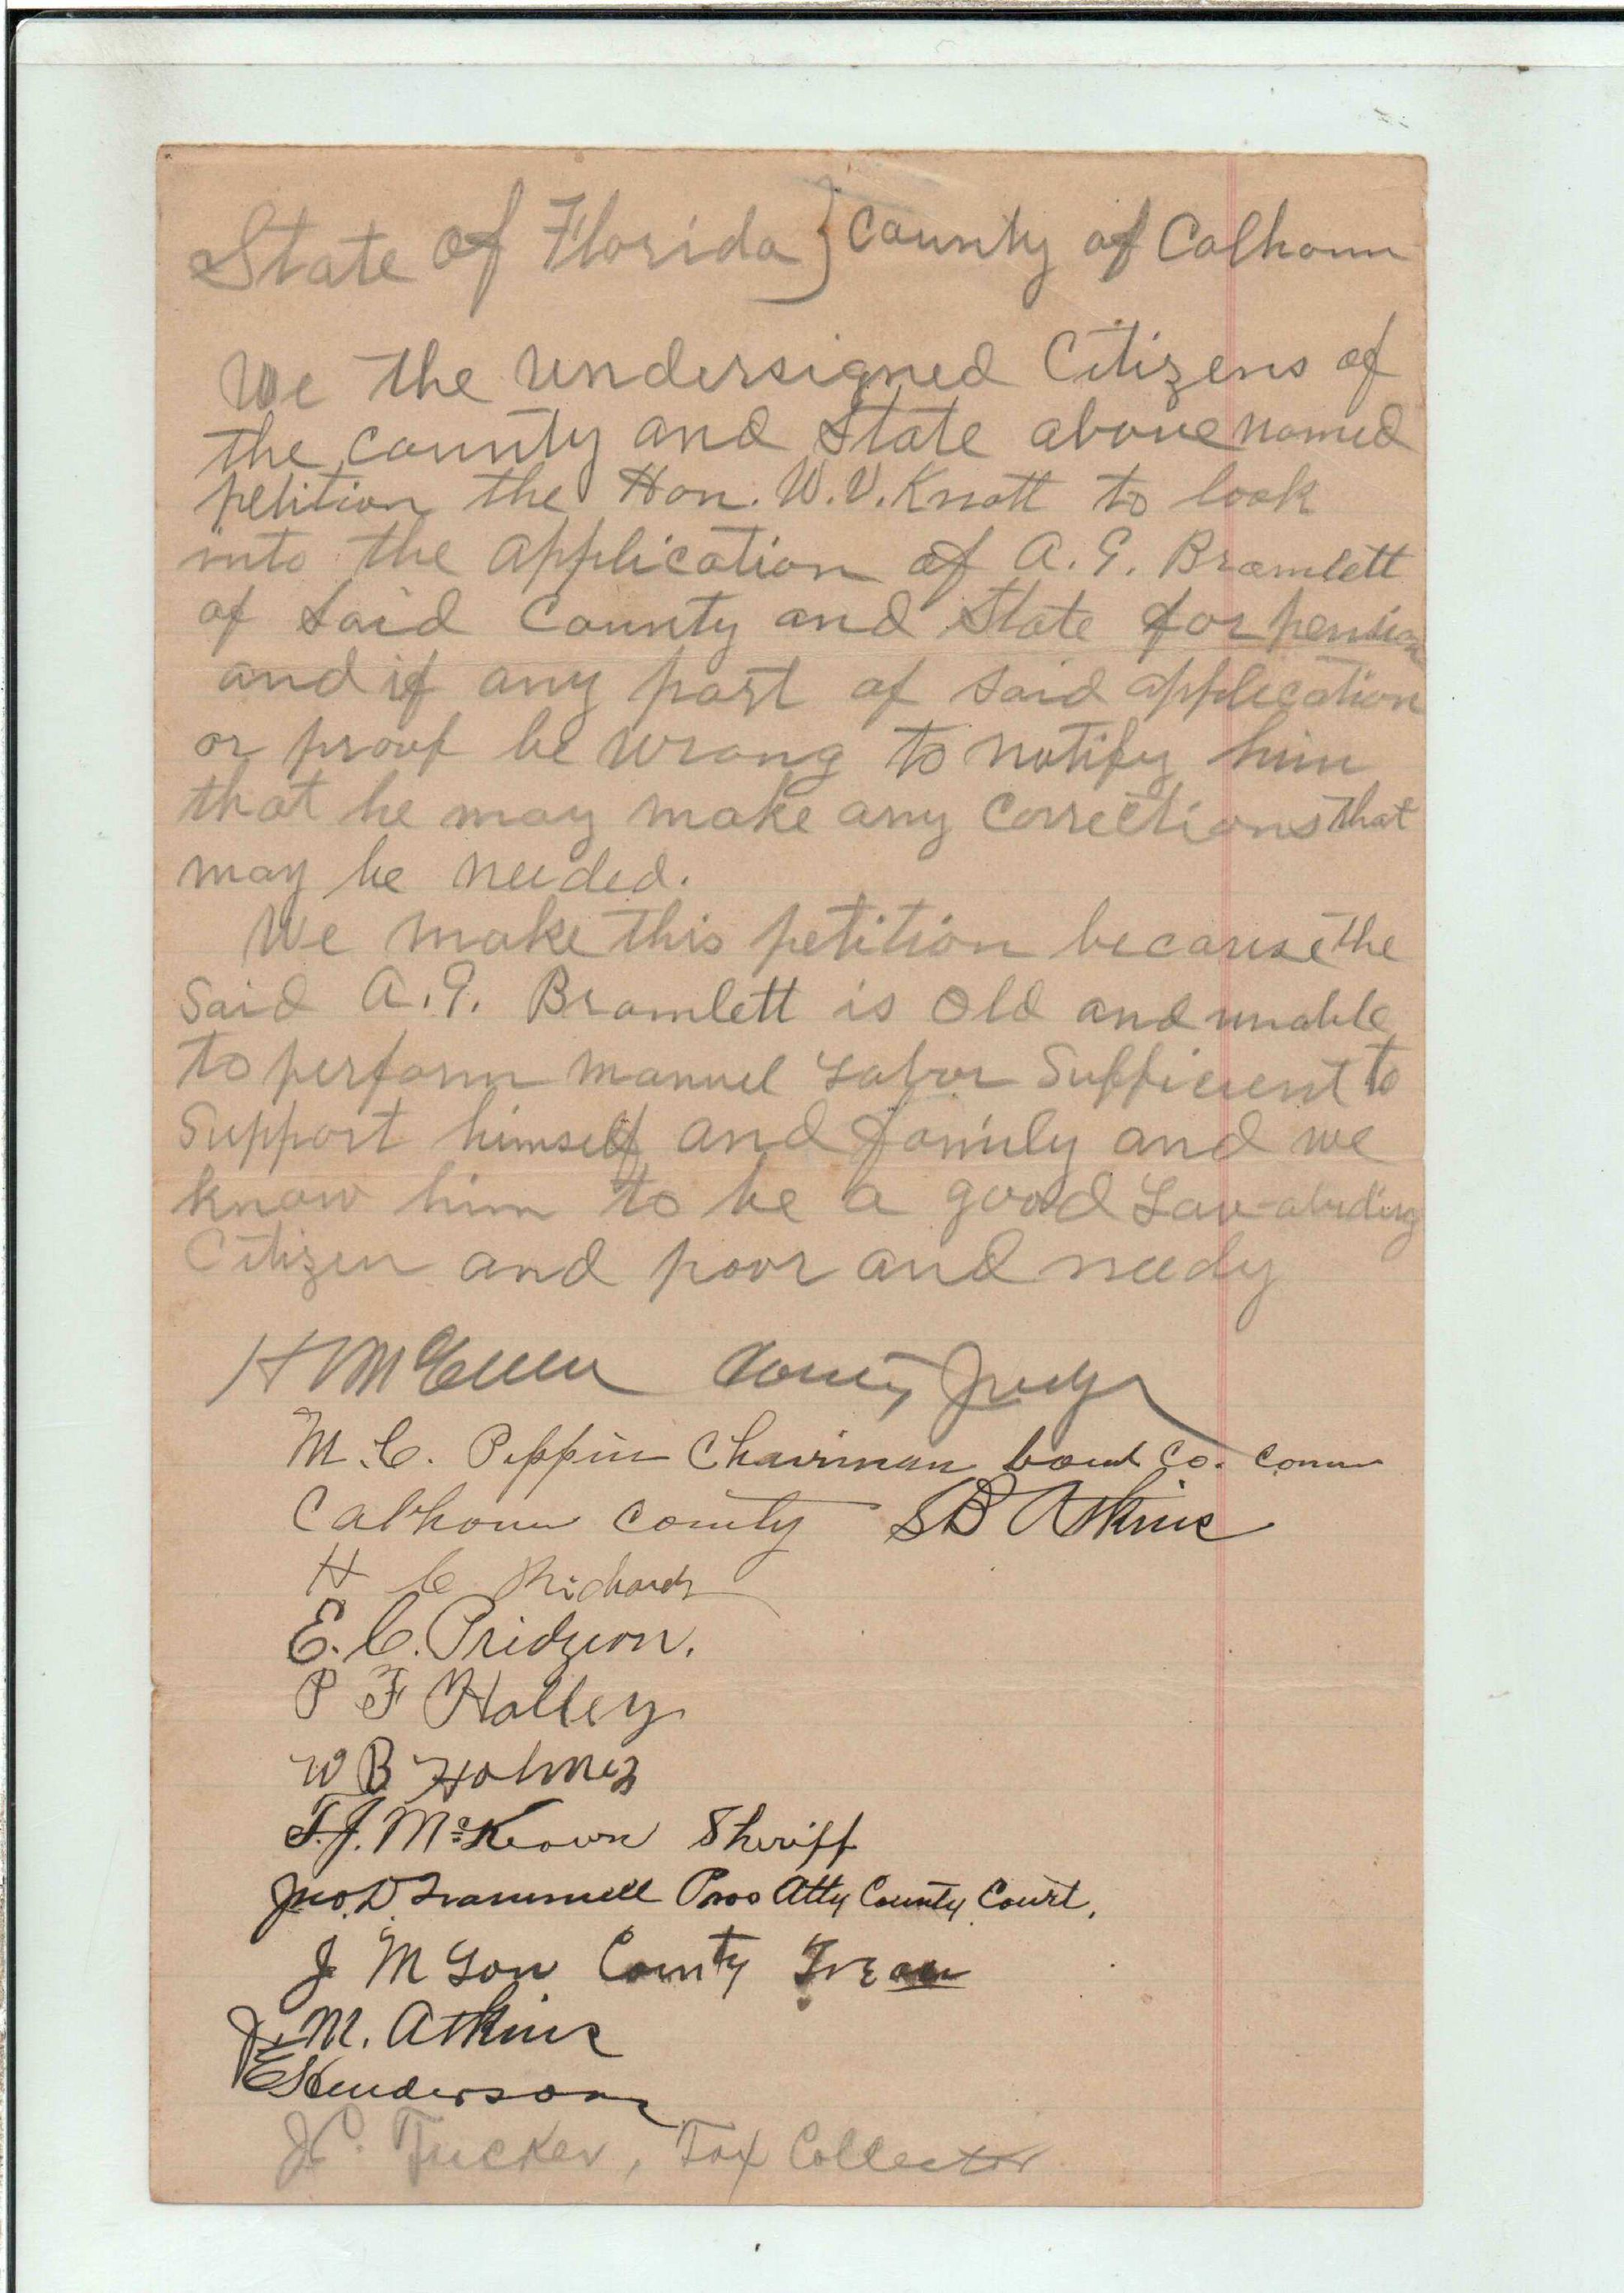 State of Florida } County of Calhoun
We the undersigned Citizens of
the county and State above named
petition the Hon. W. V. Knott to look
into the application of A. G. Bramlett
of said County and State for pension
and if any part of said application
or proof be wrong to notify him
that he may make any corrections that
may be needed.
We make this petition because the
said A. G. Bramlett is old and unable
to perform manuel Labor Sufficient to
Support himself and family and we
know him to be a good Law-abiding
Citizen and poor and needy
H M County Judge
M. C. Peppin Chairman Co. Comm
Calhoun County S B Atkins
H C Richards
E. C. Pridgeon.
P F Halley
W B Holmes
T. J. McKeown Sheriff
Jno. D. Trammell Pros Atty County Court.
J M Yon County Treas
J. M. Atkins
Henderson
J C. Tucker, Tax Collector